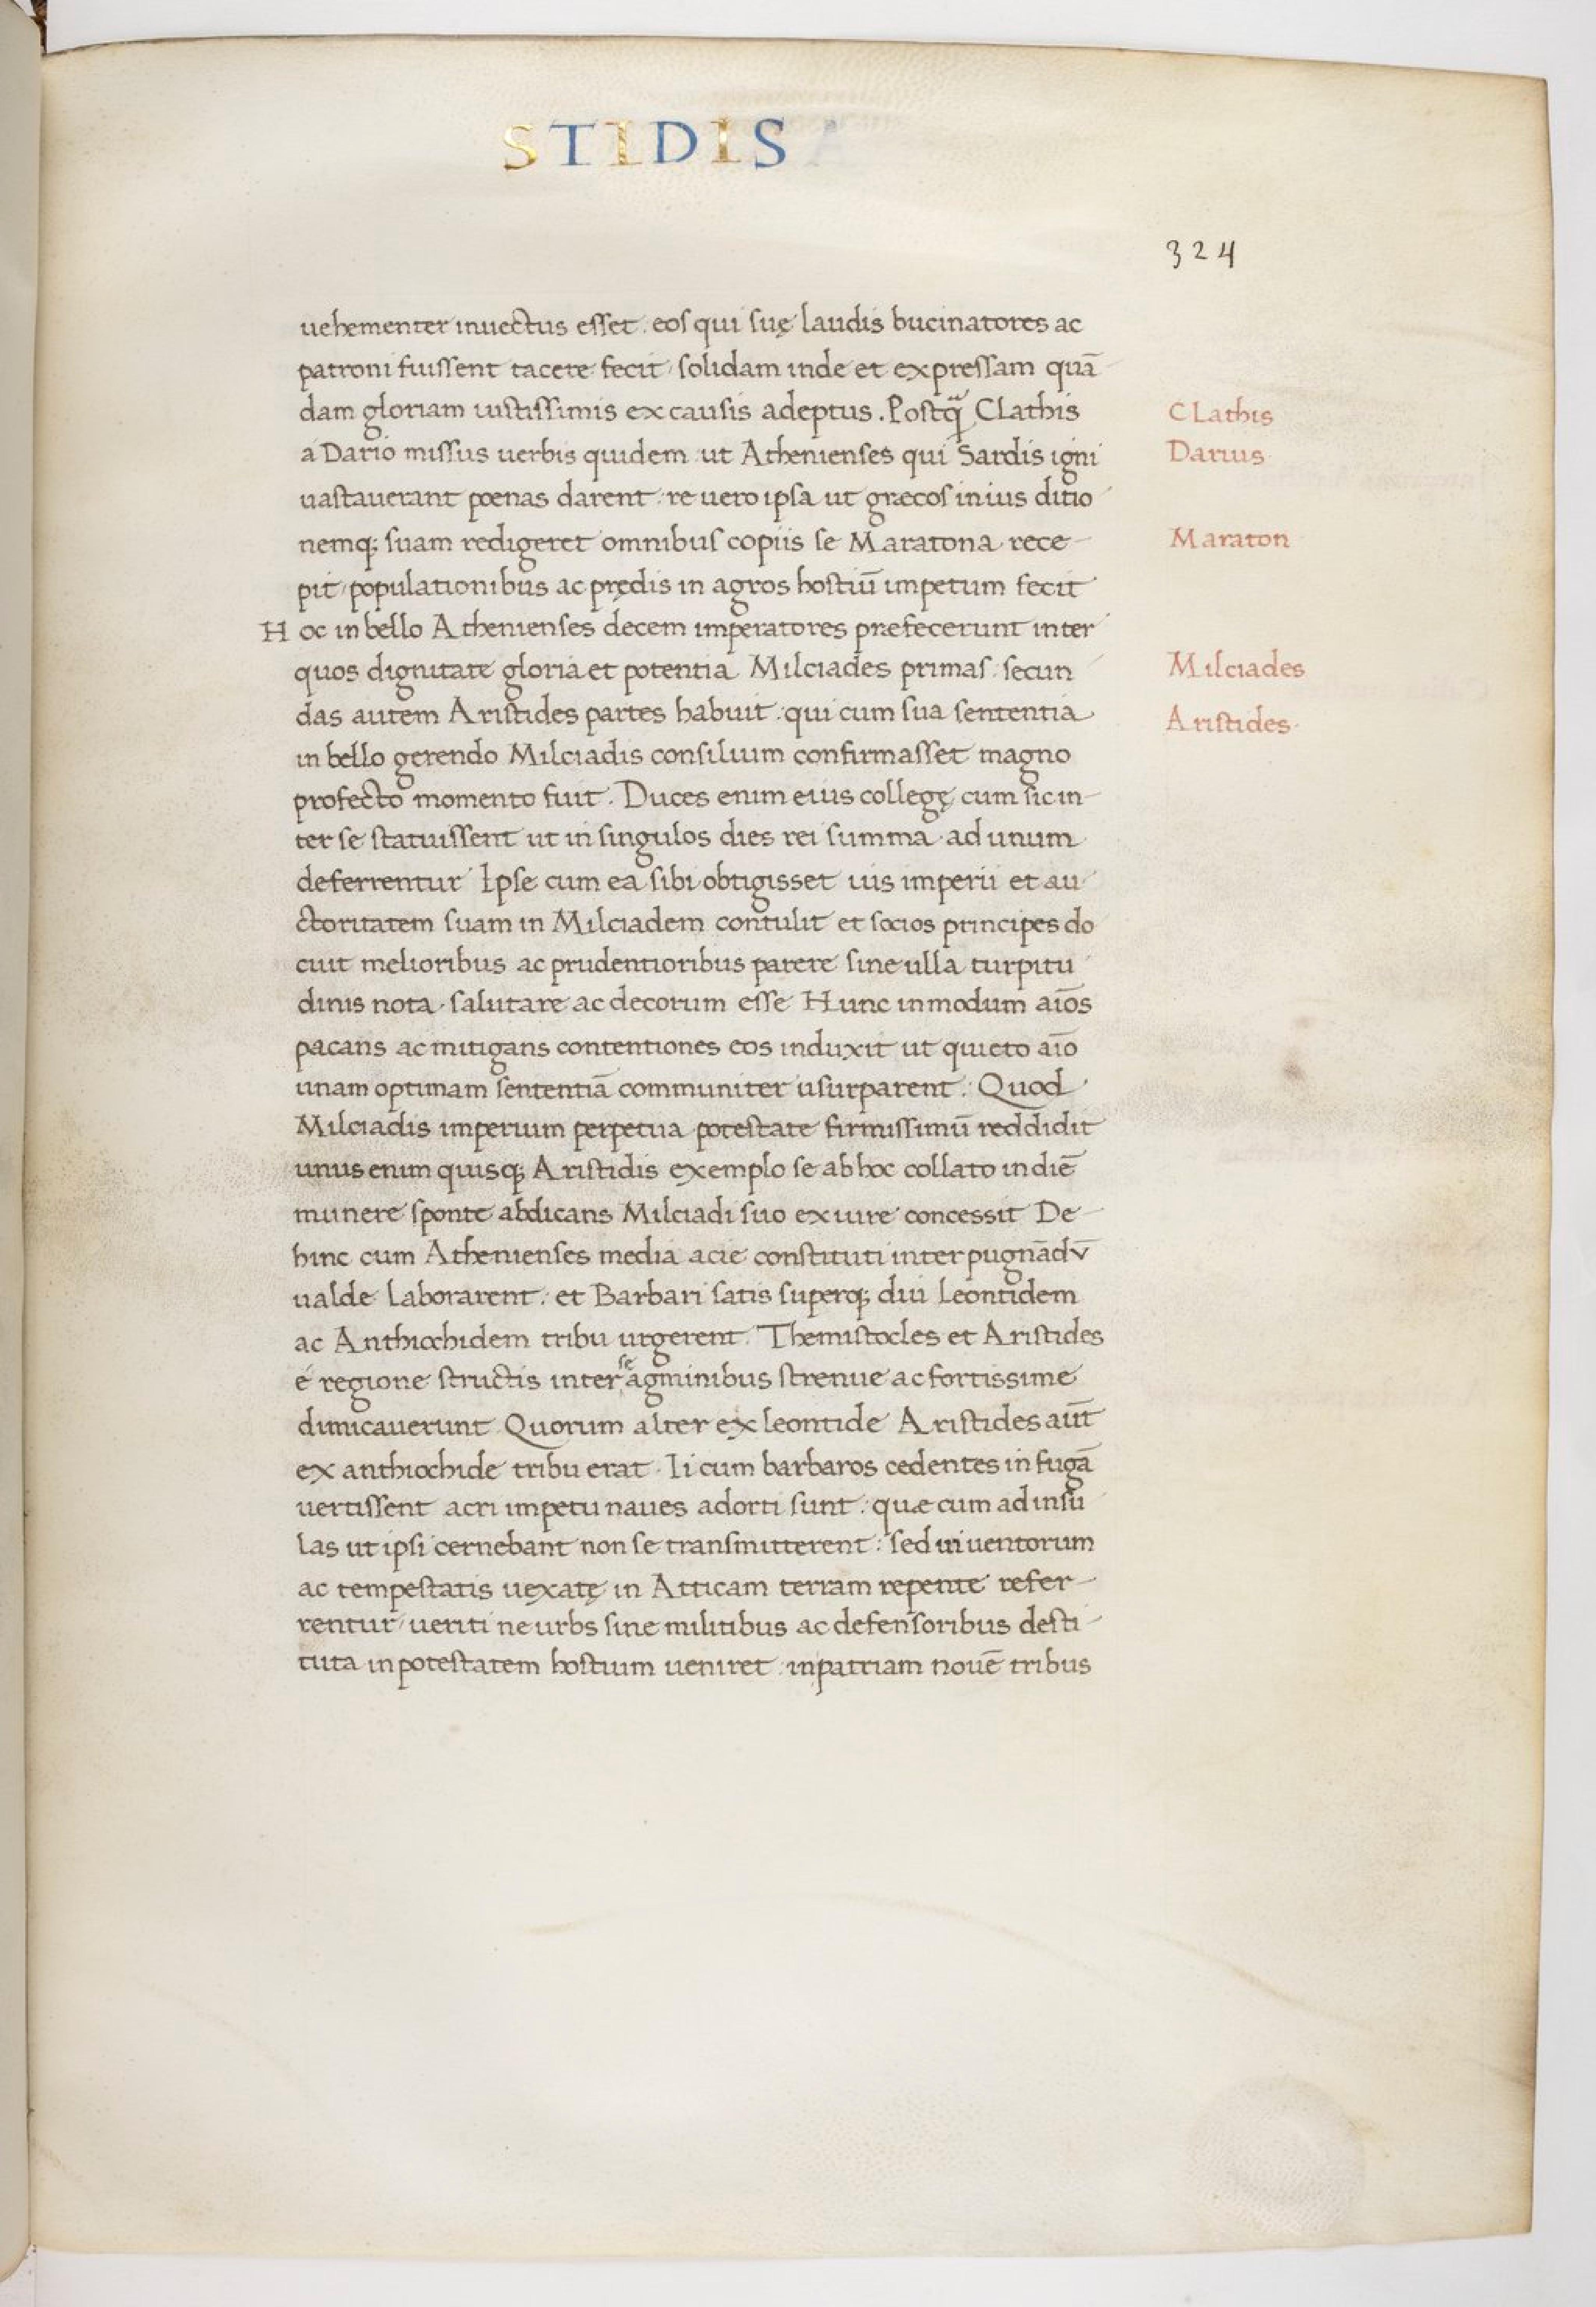 STIDIS
324
uehementer inuectus esset: eos qui suę laudis bucinatores ac
patroni fuissent tacere fecit, solidam inde et expressam quā
dam gloriam iustissimis ex causis adeptus. Postq̄ Clathis
Clathis
á Dario missus uerbis quidem ut Athenienses qui Sardis igni
Darius
uastauerant poenas darent: re uero ipsa ut græcos in ius ditio
nemq; suam redigeret omnibus copiis se Maratona rece-
Maraton
pit, populationibus ac prędis in agros hostiū impetum fecit
Hoc in bello Athenienses decem imperatores præfecerunt inter
quos dignitate gloria et potentia Milciades primas: secun
Milciades
das autem Aristides partes habuit: qui cum sua sententia
Aristides.
in bello gerendo Milciadis consilium confirmasset magno
profecto momento fuit. Duces enim eius collegę cum sic in-
ter se statuissent ut in singulos dies rei summa ad unum
deferrentur Ipse cum ea sibi obtigisset uis imperii et au
ctoritatem suam in Milciadem contulit et socios principes do
cuit melioribus ac prudentioribus parere sine ulla turpitu
dinis nota salutare ac decorum esse Hunc in modum aīos
pacans ac mitigans contentiones eos induxit ut quieto aīo
unam optimam sententiā communiter usurparent: Quod
Milciadis imperium perpetua potestate firmissimū reddidit
unus enim quisq; Aristidis exemplo se ab hoc collato in diē
munere sponte abdicans Milciadi suo ex iure concessit De-
hinc cum Athenienses media acie constituti inter pugnādv̄
ualde laborarent: et Barbari satis superq; diu Leontidem
ac Anthiochidem tribu urgerent. Themistocles et Aristides
é regione structis inter se agminibus strenue ac fortissime
dimicauerunt Quorum alter ex leontide Aristides aūt
ex anthiochide tribu erat. Ii cum barbaros cedentes in fugā
uertissent acri impetu naues adorti sunt: quæ cum ad insu
las ut ipsi cernebant non se transmitterent: sed ui uentorum
ac tempestatis uexatę in Atticam terram repente refer-
rentur, ueriti ne urbs sine militibus ac defensoribus desti-
tuta in potestatem hostium ueniret: in patriam nouē tribus